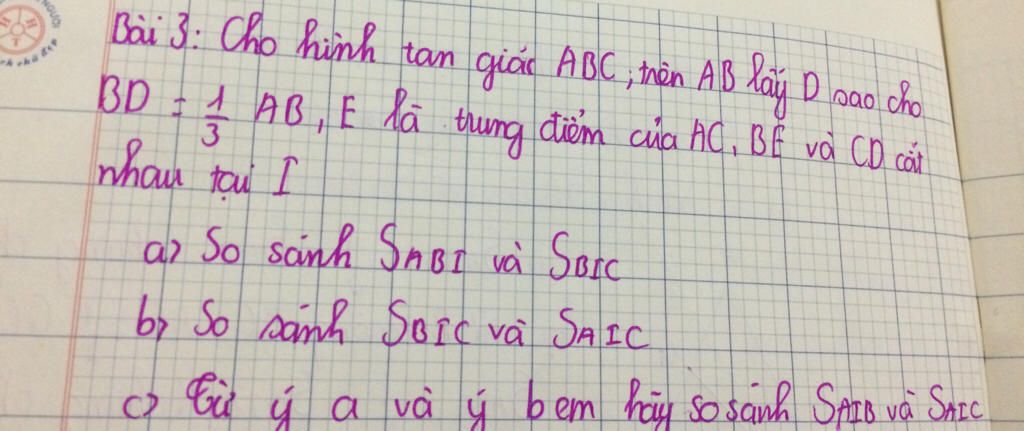 Bài 3: Cho hình tan giác ABC, trên AB lấy D sao cho
BD = 1/3 AB, E là trung điểm của AC, BE và CD cắt
nhau tại I
a) So sánh SABI và SBIC
b) So sánh SBIC và SAIC
c) Từ ý a và ý b em hãy so sánh SAIB và SAIC